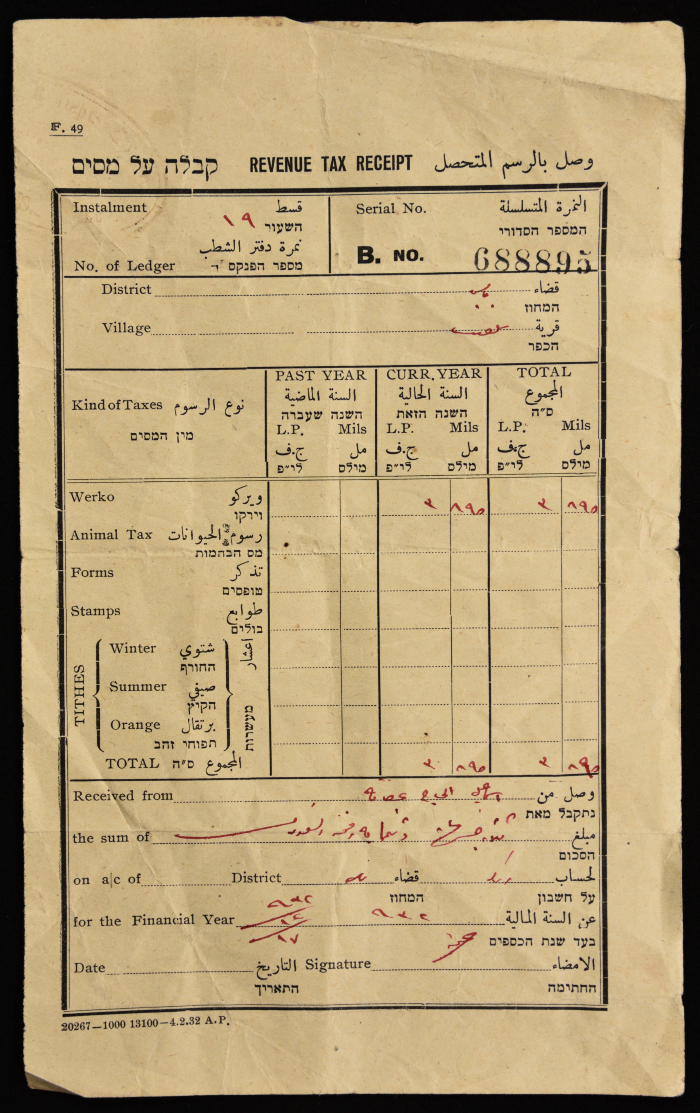 F. 49
קבלה על מסים REVENUE TAX RECEIPT وصل بالرسم المتحصل
Instalment قسط
השעור ١٩
نمرة دفتر الشطب
No. of Ledger מספר הפנקס
Serial No. النمرة المتسلسلة
המספר הסדורי
B. NO. 688895
District قضاء
המחוז
Village قرية
הכפר
Kind of Taxes نوع الرسوم
מין המסים
PAST YEAR CURR. YEAR TOTAL
السنة الماضية السنة الحالية المجموع
השנה שעברה השנה הזאת ס"ה
L.P. Mils L.P. Mils L.P. Mils
ج.ف مل ج.ف مل ج.ف مل
לי"פ מילס לי"פ מילס לי"פ מילס
Werko ويركو ٣ ٨٩٥ ٣ ٨٩٥
וירקו
Animal Tax رسوم الحيوانات
מס הבהמות
Forms تذكر
טופסים
Stamps طوابع
בולים
TITHES اعشار מעשרות
Winter شتوي
החורף
Summer صيفي
הקיץ
Orange برتقال
תפוחי זהב
TOTAL ס"ה المجموع ٣ ٨٩٥ ٣ ٨٩٥
Received from وصل من
נתקבל מאת
the sum of مبلغ
הסכום
on a/c of District قضاء لحساب
המחוז על חשבון
for the Financial Year ٩٣٢ عن السنة المالية
בעד שנת הכספים
Date التاريخ Signature الامضاء
התאריך החתימה
20267—1000 13100—4.2.32 A.P.